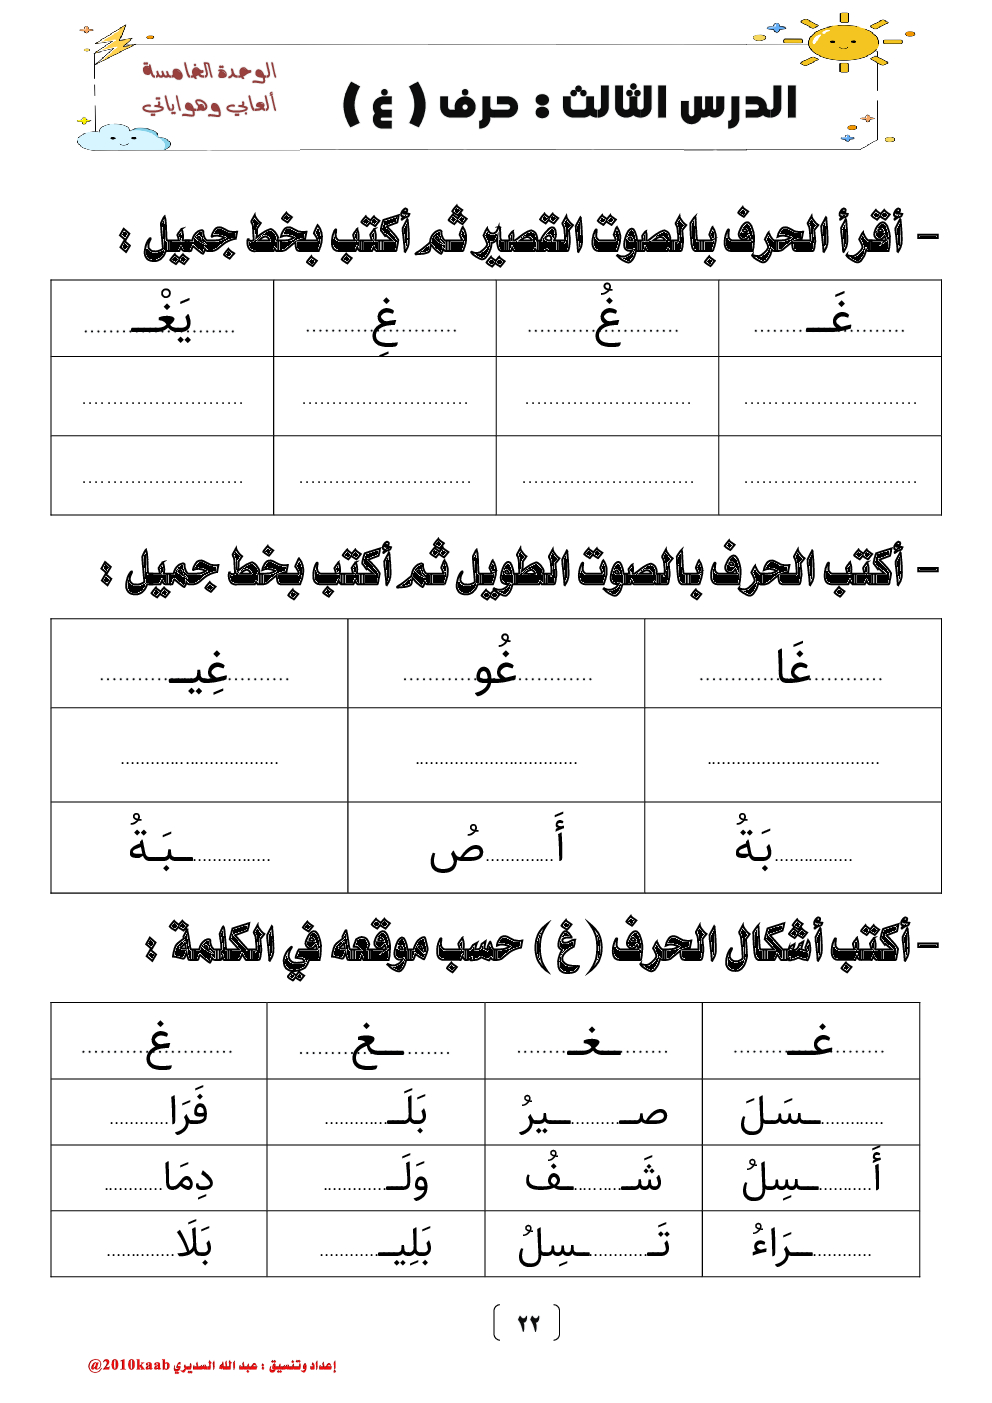 الدرس الثالث : حرف ( غ )
الوحدة الخامسة
ألعابي وهواياتي
- أقرأ الحرف بالصوت القصير ثم أكتب بخط جميل :
غَـ غُ غِ يَغْـ
- أكتب الحرف بالصوت الطويل ثم أكتب بخط جميل :
غَا غُو غِيـ
............بَةُ أَ............صُ ............ـبَـةُ
- أكتب أشكال الحرف (غ) حسب موقعه في الكلمة :
غـ ـغـ ـغ غ
............ـسَـلَ صـ............ـيرُ بَلَـ............ فَرَا............
أَ............ـسِلُ شَـ............ـفُ وَلَـ............ دِمَا............
............ـرَاءُ تَـ............ـسِلُ بَلِيـ............ بَلَا............
٢٢
إعداد وتنسيق : عبد الله السديري @2010kaab